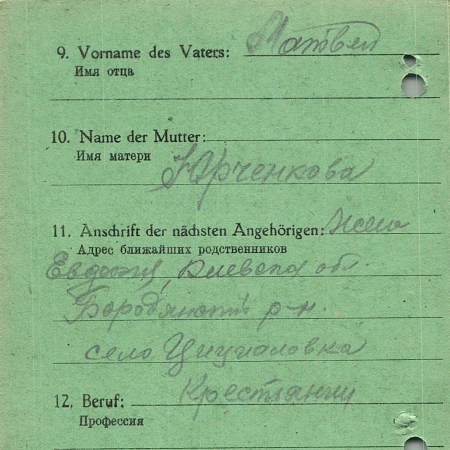 9. Vorname des Vaters: Матвей
Имя отца
10. Name der Mutter:
Имя матери Юрченкова
11. Anschrift der nächsten Angehörigen: Жена
Адрес ближайших родственников
Евдокия, Киевская обл.
Бородянский р-н.
село
12. Beruf: Крестьянин
Профессия